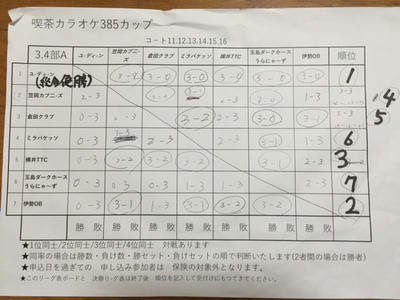 喫茶カラオケ385カップ
コート11.12.13.14.15.16
3.4部A ユ・ディ・ン 笠岡カブニーズ 倉田クラブ ミラバケッソ 横井TTC 玉島ダークホースうらにゃ~ず 伊勢OB 順位
1 ユ・ディ・ン 3-2 3-0 3-0 3-0 3-0 3-0 1
2 笠岡カブニ-ズ 2-3 0-3 3-1 2-3 3-0 1-3 4
3 倉田クラブ 0-3 3-0 3-2 2-3 3-1 2-3 5
4 ミラバケッソ 0-3 1-3 2-3 2-3 3-1 1-3 6
5 横井TTC 0-3 3-2 3-2 3-2 3-1 2-3 3
6 玉島ダークホース
うらにゃ~ず 0-3 0-3 1-3 1-3 1-3 2-3 7
7 伊勢OB 0-3 3-1 3-2 3-1 3-2 3-2 2
勝 敗 勝 敗 勝 敗 勝 敗 勝 敗 勝 敗 勝 敗
★1位同士/2位同士/3位同士/4位同士 対戦あります
★同率の場合は勝数・負け数・勝セット・負けセットの順で判断いたします(2者間の場合は勝者)
★申込日を過ぎての 申し込み参加者は 保険の対象外となります。
★このリーグ表ボードと 決勝リーグ表は終了後 順位を記入して受付けにもつてきてください。